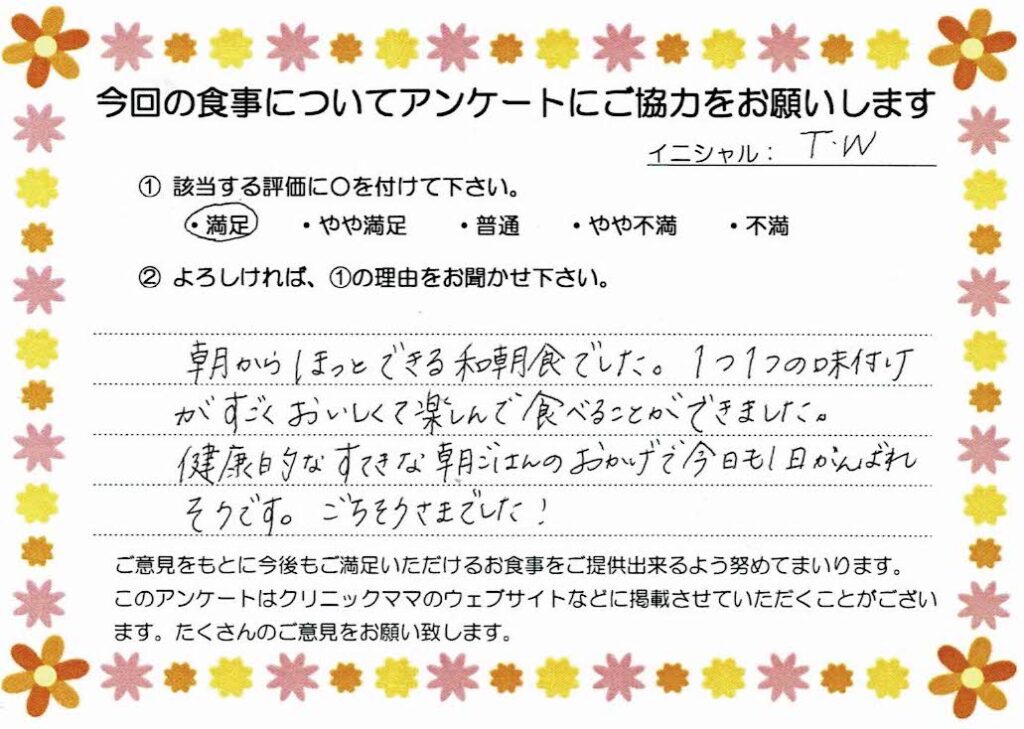 今回の食事についてアンケートにご協力をお願いします
イニシャル： T.W
① 該当する評価に〇を付けて下さい。
・満足 ・やや満足 ・普通 ・やや不満 ・不満
② よろしければ、①の理由をお聞かせ下さい。
朝からほっとできる和朝食でした。1つ1つの味付け
がすごくおいしくて楽しんで食べることができました。
健康的なすてきな朝ごはんのおかげで今日も1日がんばれ
そうです。ごちそうさまでした！
ご意見をもとに今後もご満足いただけるお食事をご提供出来るよう努めてまいります。
このアンケートはクリニックママのウェブサイトなどに掲載させていただくことがござい
ます。たくさんのご意見をお願い致します。